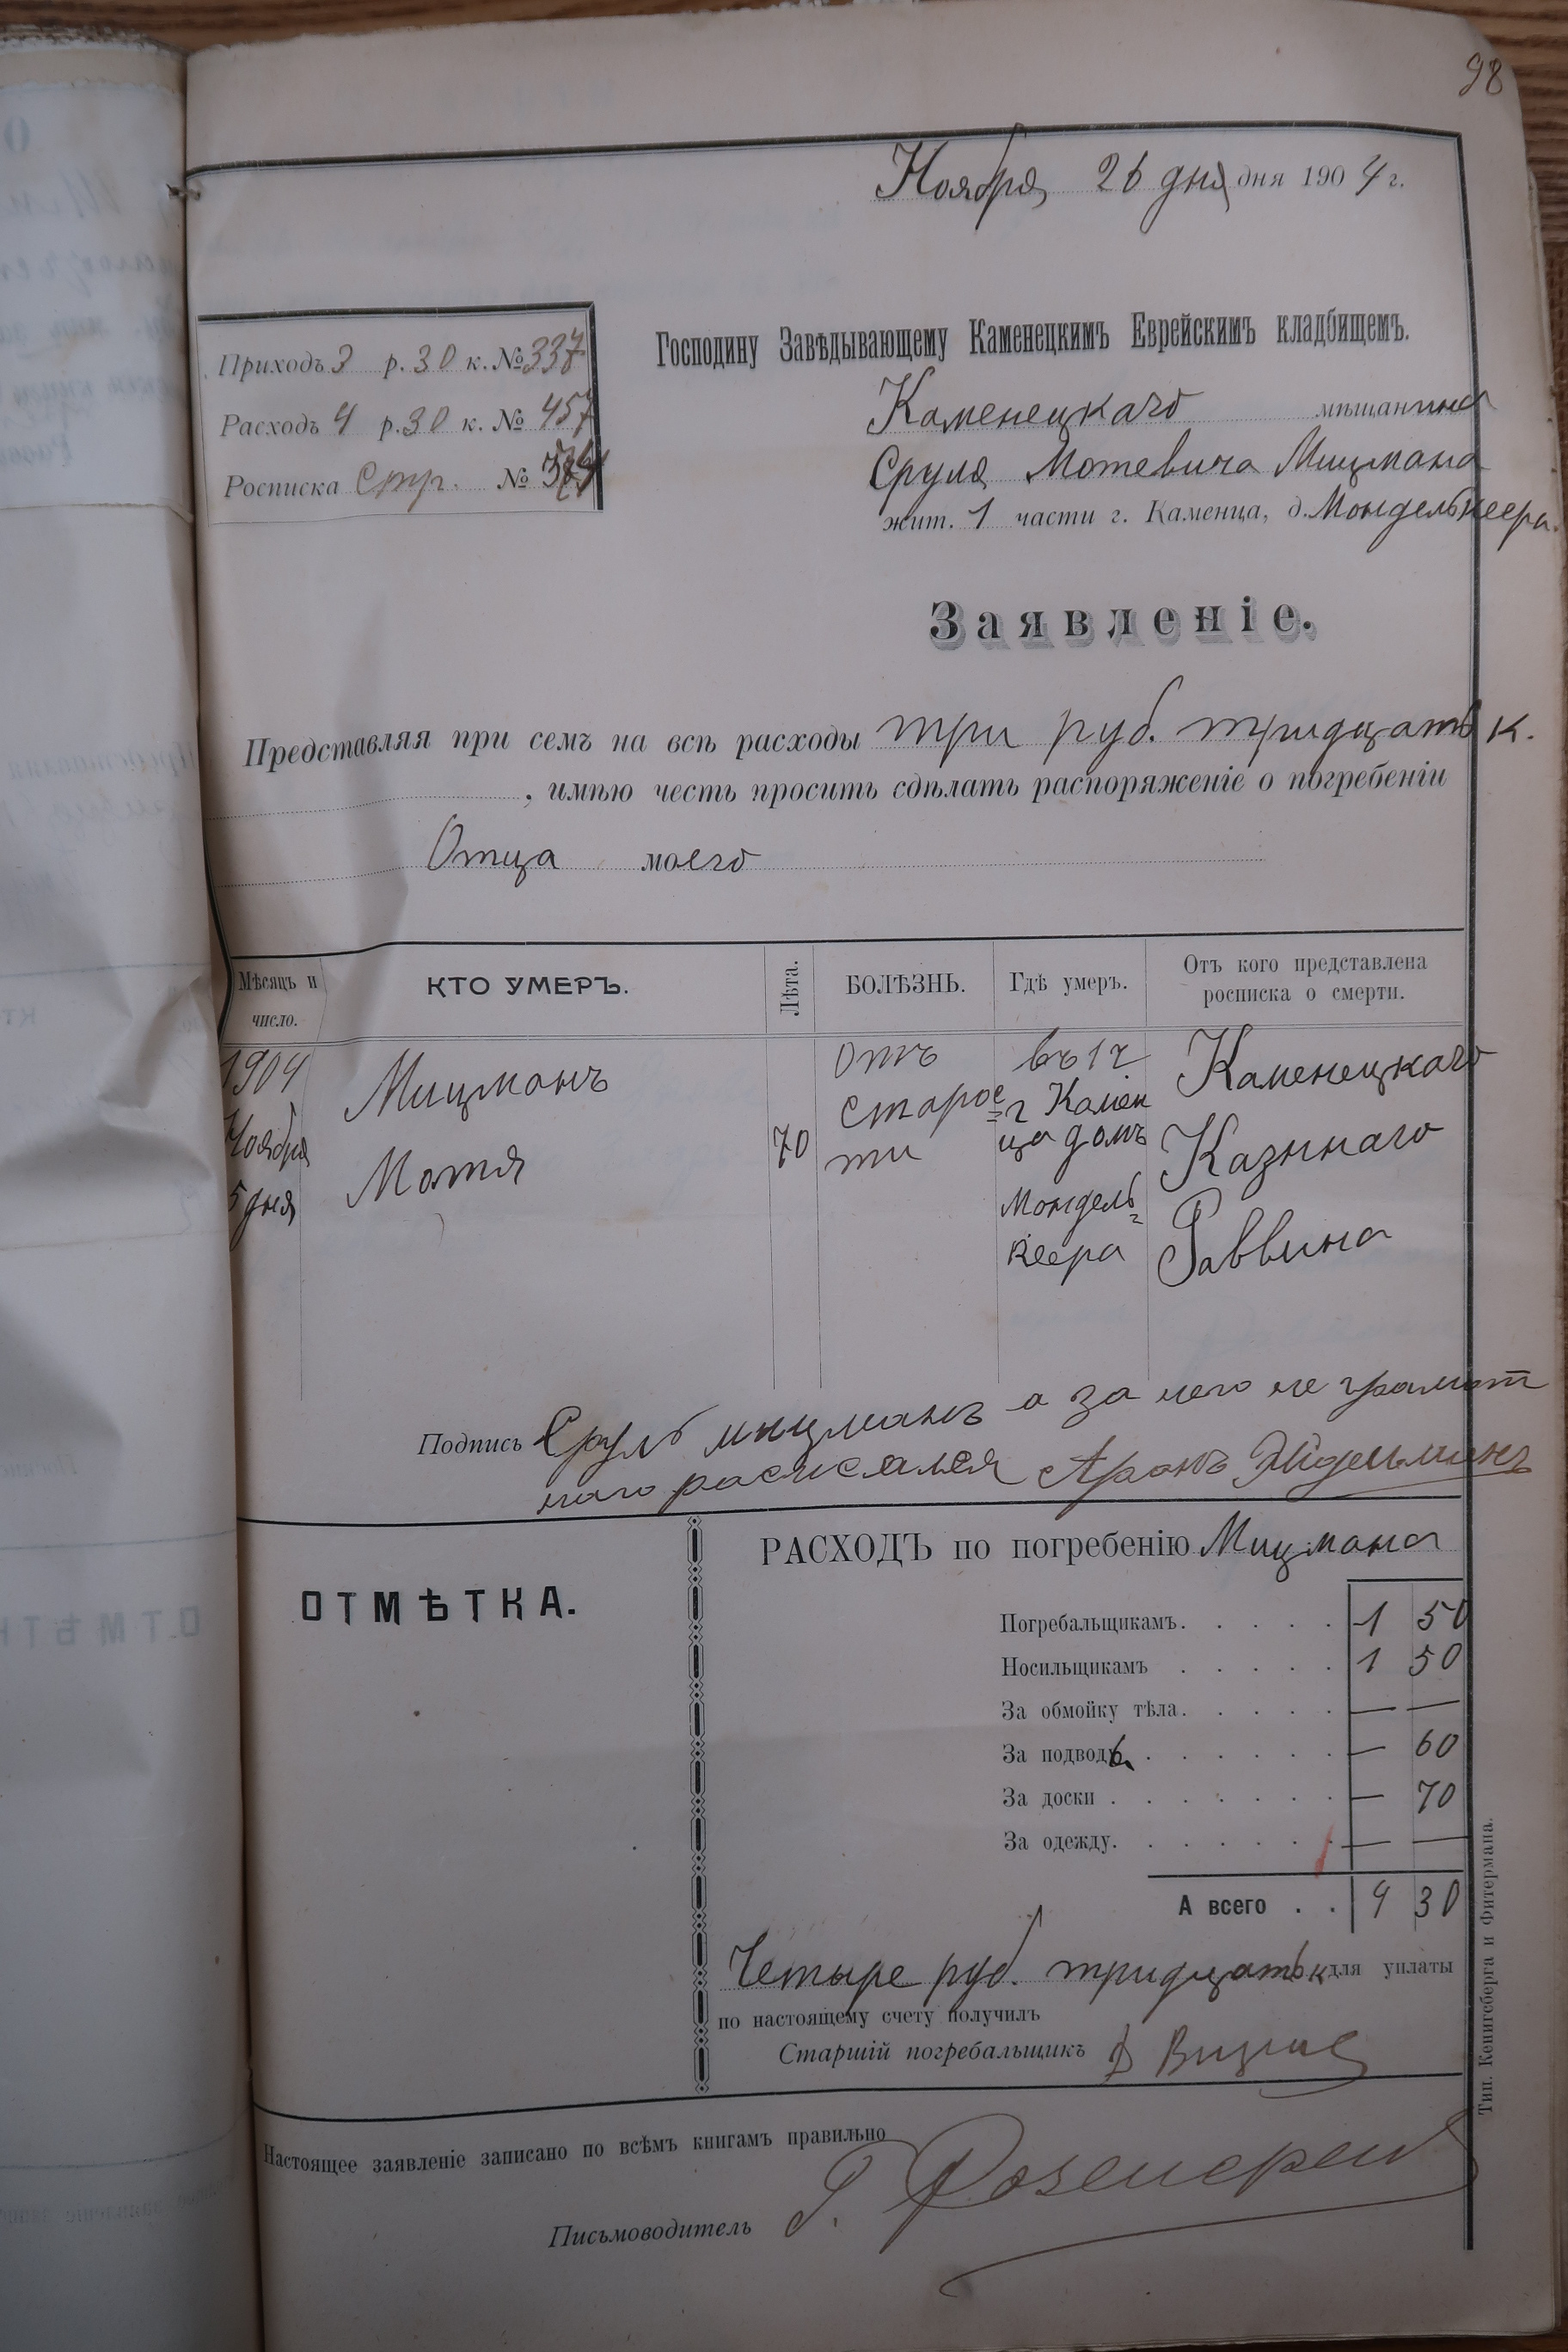 98
Ноября 26 дня дня 1904 г.
Приходъ 3 р. 30 к. № 337
Расходъ 4 р. 30 к. № 457
Росписка Стр. №
Господину Завѣдывающему Каменецкимъ Еврейскимъ кладбищемъ.
Каменецкаго мѣщанина
Сруля Мотевича Мицмана
жит. 1 части г. Каменца, д. Монделькеера.
Заявленіе.
Представляя при семъ на всѣ расходы три руб. тридцать к.
, имѣю честь просить сдѣлать распоряженіе о погребеніи
Отца моего
Мѣсяцъ и число.
КТО УМЕРЪ.
Лѣта.
БОЛѢЗНЬ.
Гдѣ умеръ.
Отъ кого представлена
росписка о смерти.
1904
Ноября
5 дня
Мицманъ
Мотя
70
Отъ
старос
ти
въ 1 ч
г Камен
ца домъ
Мондель-
кеера
Каменецкаго
Казннаго
Раввина
Подпись Сруль мицманъ а за него не грамот
наго расписался Аронъ Эйдельманъ
ОТМѢТКА.
РАСХОДЪ по погребенію Мицмана
Погребальщикамъ. . . . . 1 50
Носильщикамъ . . . . . 1 50
За обмойку тѣла. . . . . — —
За подводы . . . . . . — 60
За доски . . . . . . . — 70
За одежду. . . . . . . — —
А всего . . 4 30
Четыре руб. тридцать к для уплаты
по настоящему счету получилъ
Старшій погребальщикъ
Настоящее заявленіе записано по всѣмъ книгамъ правильно
Письмоводитель
Тип. Кенигсберга и Фитермана.